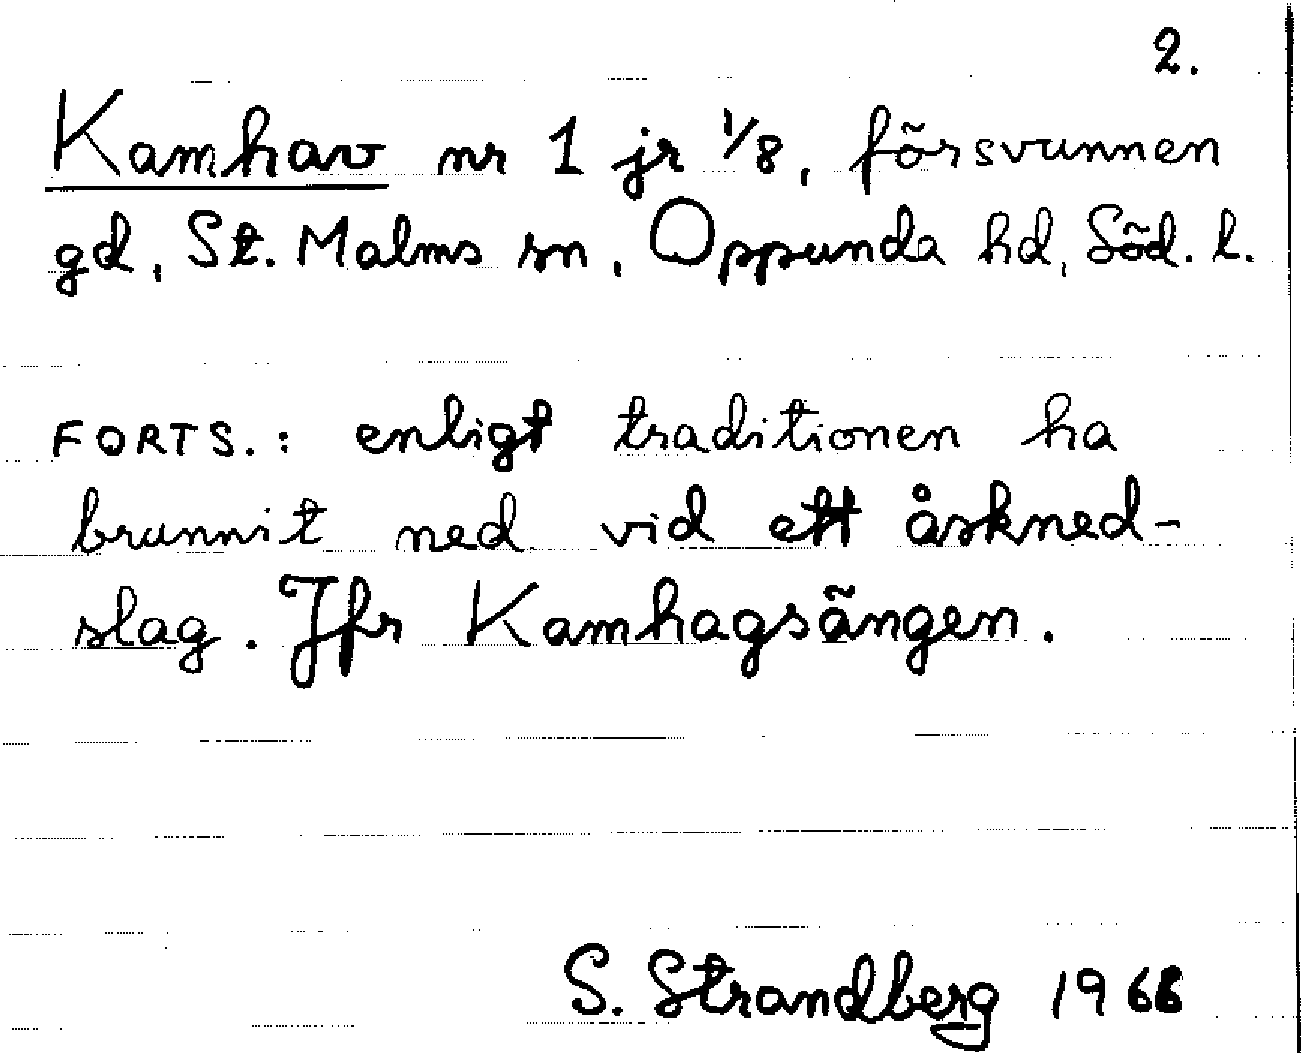 2.
Kamhav nr 1 jr 1/8, försvunnen
gd, St. Malms sn, Oppunda hd, Söd. l.
FORTS.: enligt traditionen ha
brunnit ned vid ett åskned-
slag. Jfr Kamhagsängen.
S. Strandberg 1966